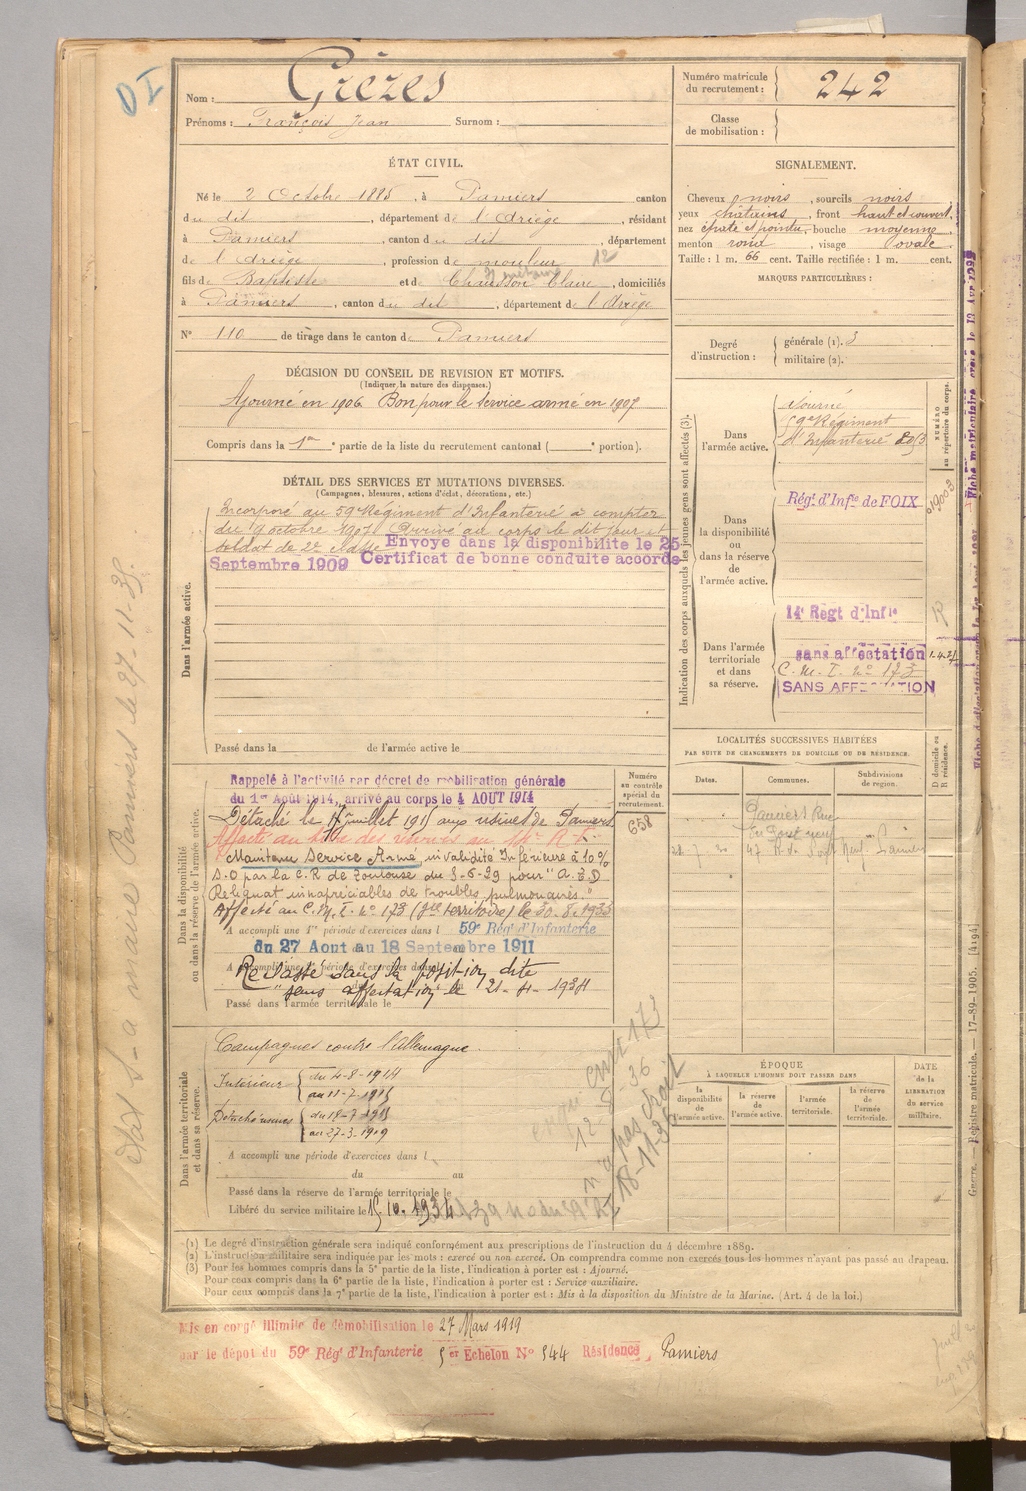 Nom : Grèzes
Prénoms : François Jean Surnom :
Numéro matricule du recrutement : 242
Classe de mobilisation :
ÉTAT CIVIL.
Né le 2 Octobre 1885, à Pamiers canton
du dit, département de l'Ariège, résidant
à Pamiers, canton du dit, département
de l'Ariège, profession de mouleur 12
fils de Baptiste et de Chaudson Claire, domiciliés
à Pamiers, canton du dit, département de l'Ariège
N° 110 de tirage dans le canton de Pamiers
SIGNALEMENT.
Cheveux noirs, sourcils noirs
yeux châtains, front haut et couvert,
nez épaté et pointu, bouche moyenne,
menton rond, visage ovale.
Taille : 1 m. 66 cent. Taille rectifiée : 1 m. cent.
MARQUES PARTICULIÈRES :
Degré d'instruction :
générale (1). 3
militaire (2).
DÉCISION DU CONSEIL DE REVISION ET MOTIFS.
(Indiquer la nature des dispenses.)
Ajourné en 1906 Bon pour le service armé en 1907
Compris dans la 1re partie de la liste du recrutement cantonal ( portion).
DÉTAIL DES SERVICES ET MUTATIONS DIVERSES.
(Campagnes, blessures, actions d'éclat, décorations, etc.)
Dans l'armée active.
Incorporé au 59e Régiment d'Infanterie à compter
du 9 octobre 1907 Arrivé au corps le dit jour et
soldat de 2e classe Envoyé dans la disponibilité le 25
Septembre 1909 Certificat de bonne conduite accordé
Passé dans la de l'armée active le
Dans la disponibilité ou dans la réserve de l'armée active.
Rappelé à l'activité par décret de mobilisation générale
du 1er Août 1914, arrivé au corps le 4 AOUT 1914
Détaché le 17 juillet 1915 aux usines de Pamiers
Maintenu Service Armé invalidité Inférieure à 10%
S.O par la C.R de Toulouse du 5-6-29 pour "
Reliquat inappréciables de troubles pulmonaires."
Affecté au C.M.I. n° 173 le 30.8.1933
A accompli une 1re période d'exercices dans l 59e Rég d'Infanterie
du 27 Aout au 18 Septembre 1911
A accompli une 2e période d'exercices dans l
Repassé dans la position dite
"sans affectation" le 21-4-1934
Passé dans l'armée territoriale le
Numéro au contrôle spécial du recrutement.
658
Dans l'armée territoriale et dans sa réserve.
Campagnes contre l'Allemagne.
Intérieur du 4-8-1914
au 17-7-1915
Détaché usines du 18-7-1915
au 27-3-1919
A accompli une période d'exercices dans l
du au
Passé dans la réserve de l'armée territoriale le
Libéré du service militaire le 15.10.1934
Indication des corps auxquels les jeunes gens sont affectés (3).
NUMÉRO au répertoire du corps.
Dans l'armée active.
59e Régiment
d'Infanterie
Dans la disponibilité ou dans la réserve de l'armée active.
Régt d'Infie de FOIX
Dans l'armée territoriale et dans sa réserve.
14e Régt d'Infie
sans affectation 1.4.21
C.M.I. n° 173
SANS AFFECTATION
R
LOCALITÉS SUCCESSIVES HABITÉES
PAR SUITE DE CHANGEMENTS DE DOMICILE OU DE RÉSIDENCE.
Dates. Communes. Subdivisions de région. D domicile ou R résidence.
Pamiers Rue
du Pont neuf
47 R du Pont Neuf Pamiers
ÉPOQUE
À LAQUELLE L'HOMME DOIT PASSER DANS
la disponibilité de l'armée active.
la réserve de l'armée active.
l'armée territoriale.
la réserve de l'armée territoriale.
DATE de la LIBÉRATION du service militaire.
(1) Le degré d'instruction générale sera indiqué conformément aux prescriptions de l'instruction du 4 décembre 1889.
(2) L'instruction militaire sera indiquée par les mots : exercé ou non exercé. On comprendra comme non exercés tous les hommes n'ayant pas passé au drapeau.
(3) Pour les hommes compris dans la 5e partie de la liste, l'indication à porter est : Ajourné.
Pour ceux compris dans la 6e partie de la liste, l'indication à porter est : Service auxiliaire.
Pour ceux compris dans la 7e partie de la liste, l'indication à porter est : Mis à la disposition du Ministre de la Marine. (Art. 4 de la loi.)
Mis en congé illimité de démobilisation le 27 Mars 1919
par le dépot du 59e Rég d'Infanterie 5er Echelon N° 544 Résidence, Pamiers
Guerre. — Registre matricule. — 17-89-1905. [4194]
n'a pas droit
18-11-36